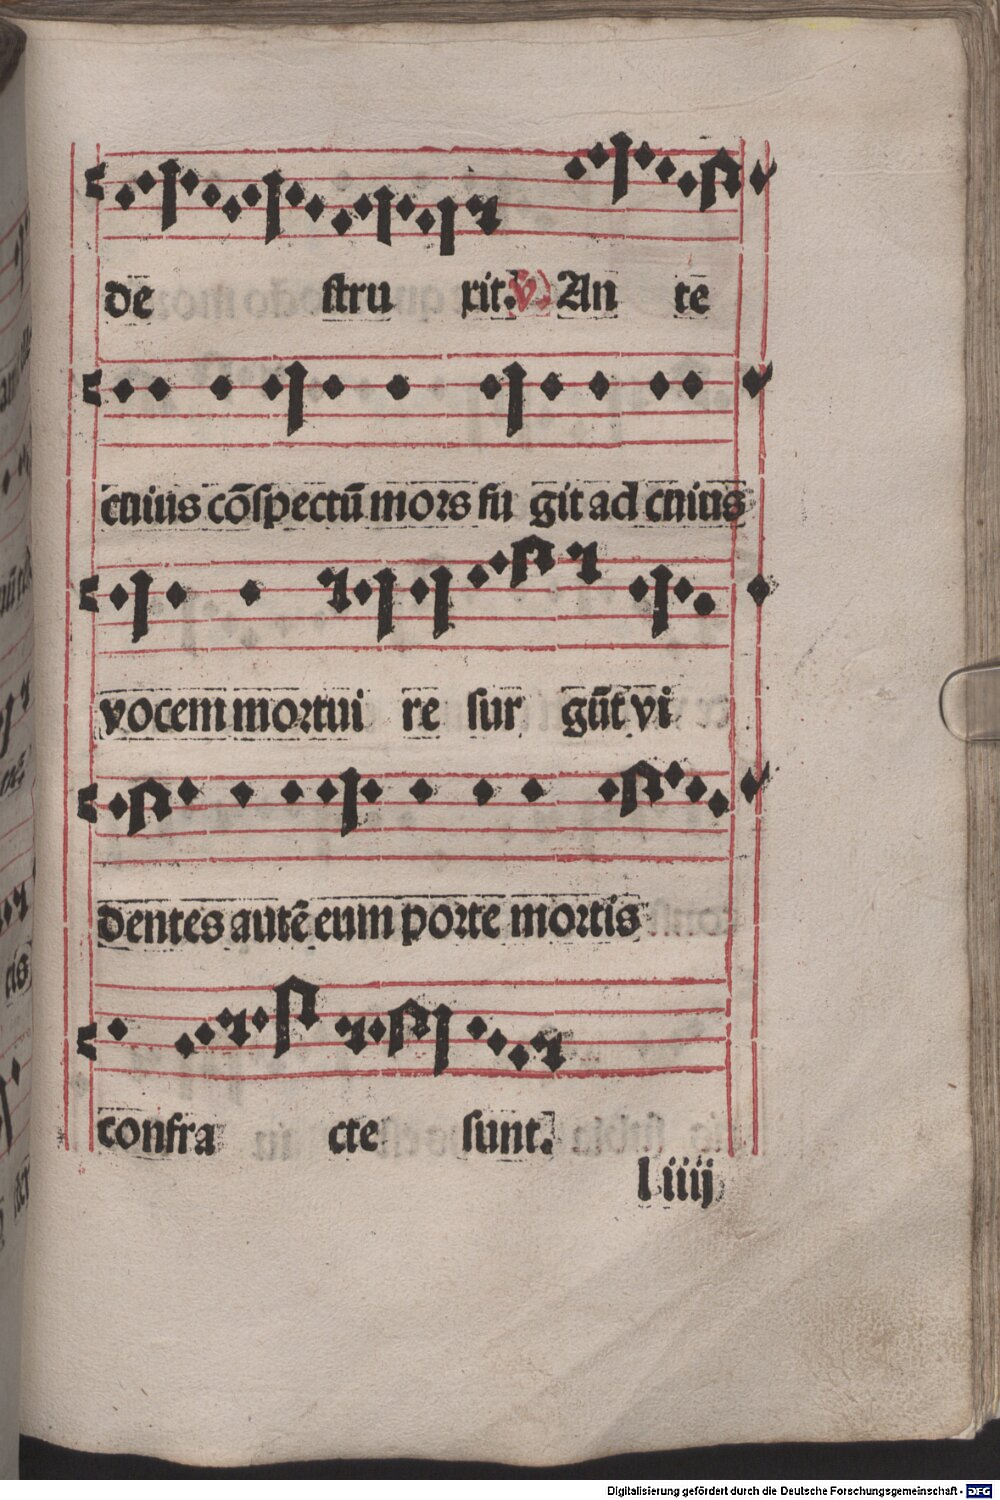 de stru xit. V. An te
cuius cōspectū mors fu git ad cuius
vocem mortui re sur gūt vi
dentes autē eum porte mortis
confra cte sunt.
l iiij
Digitalisierung gefördert durch die Deutsche Forschungsgemeinschaft - DFG